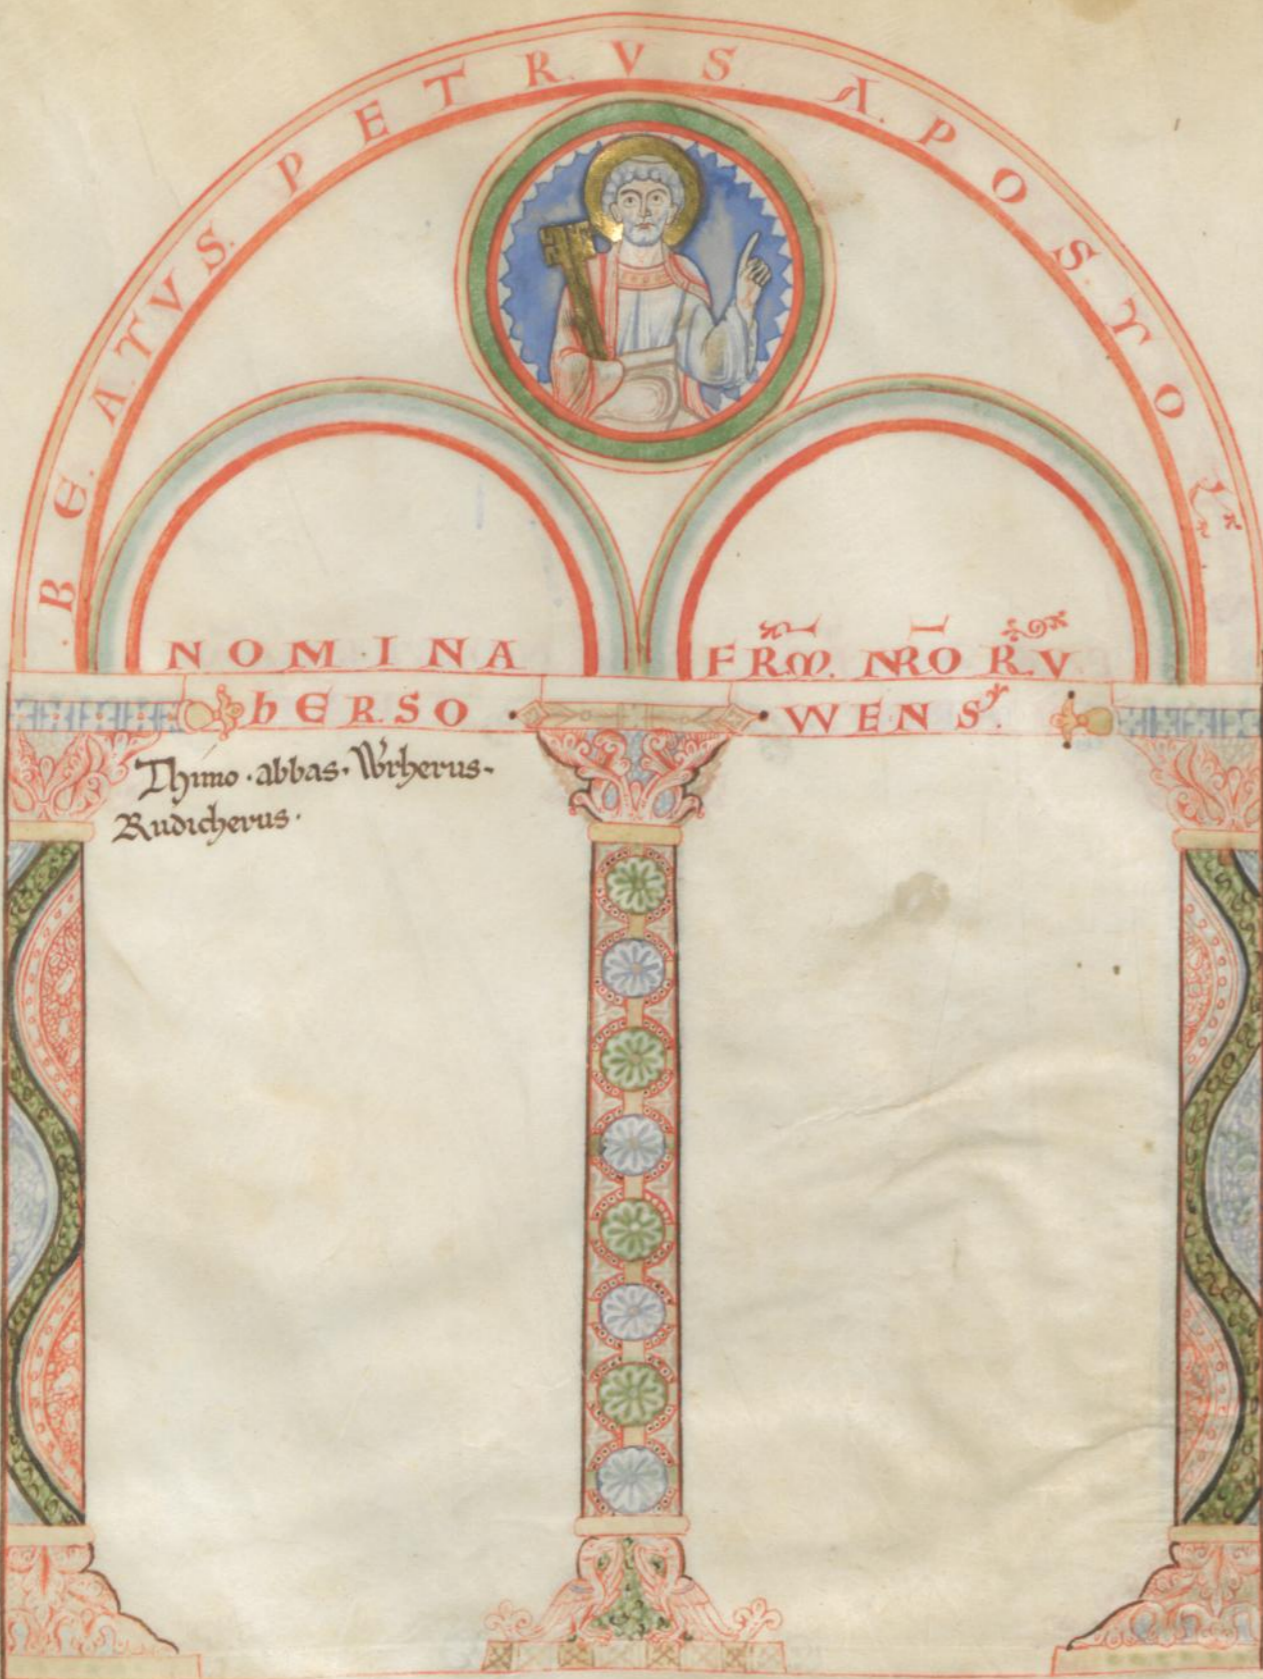 BEATVS PETRVS APOSTO
NOMINA FRM NRORV
hERSO WENS
Thimo · abbas · Wrherus ·
Rudicherus ·